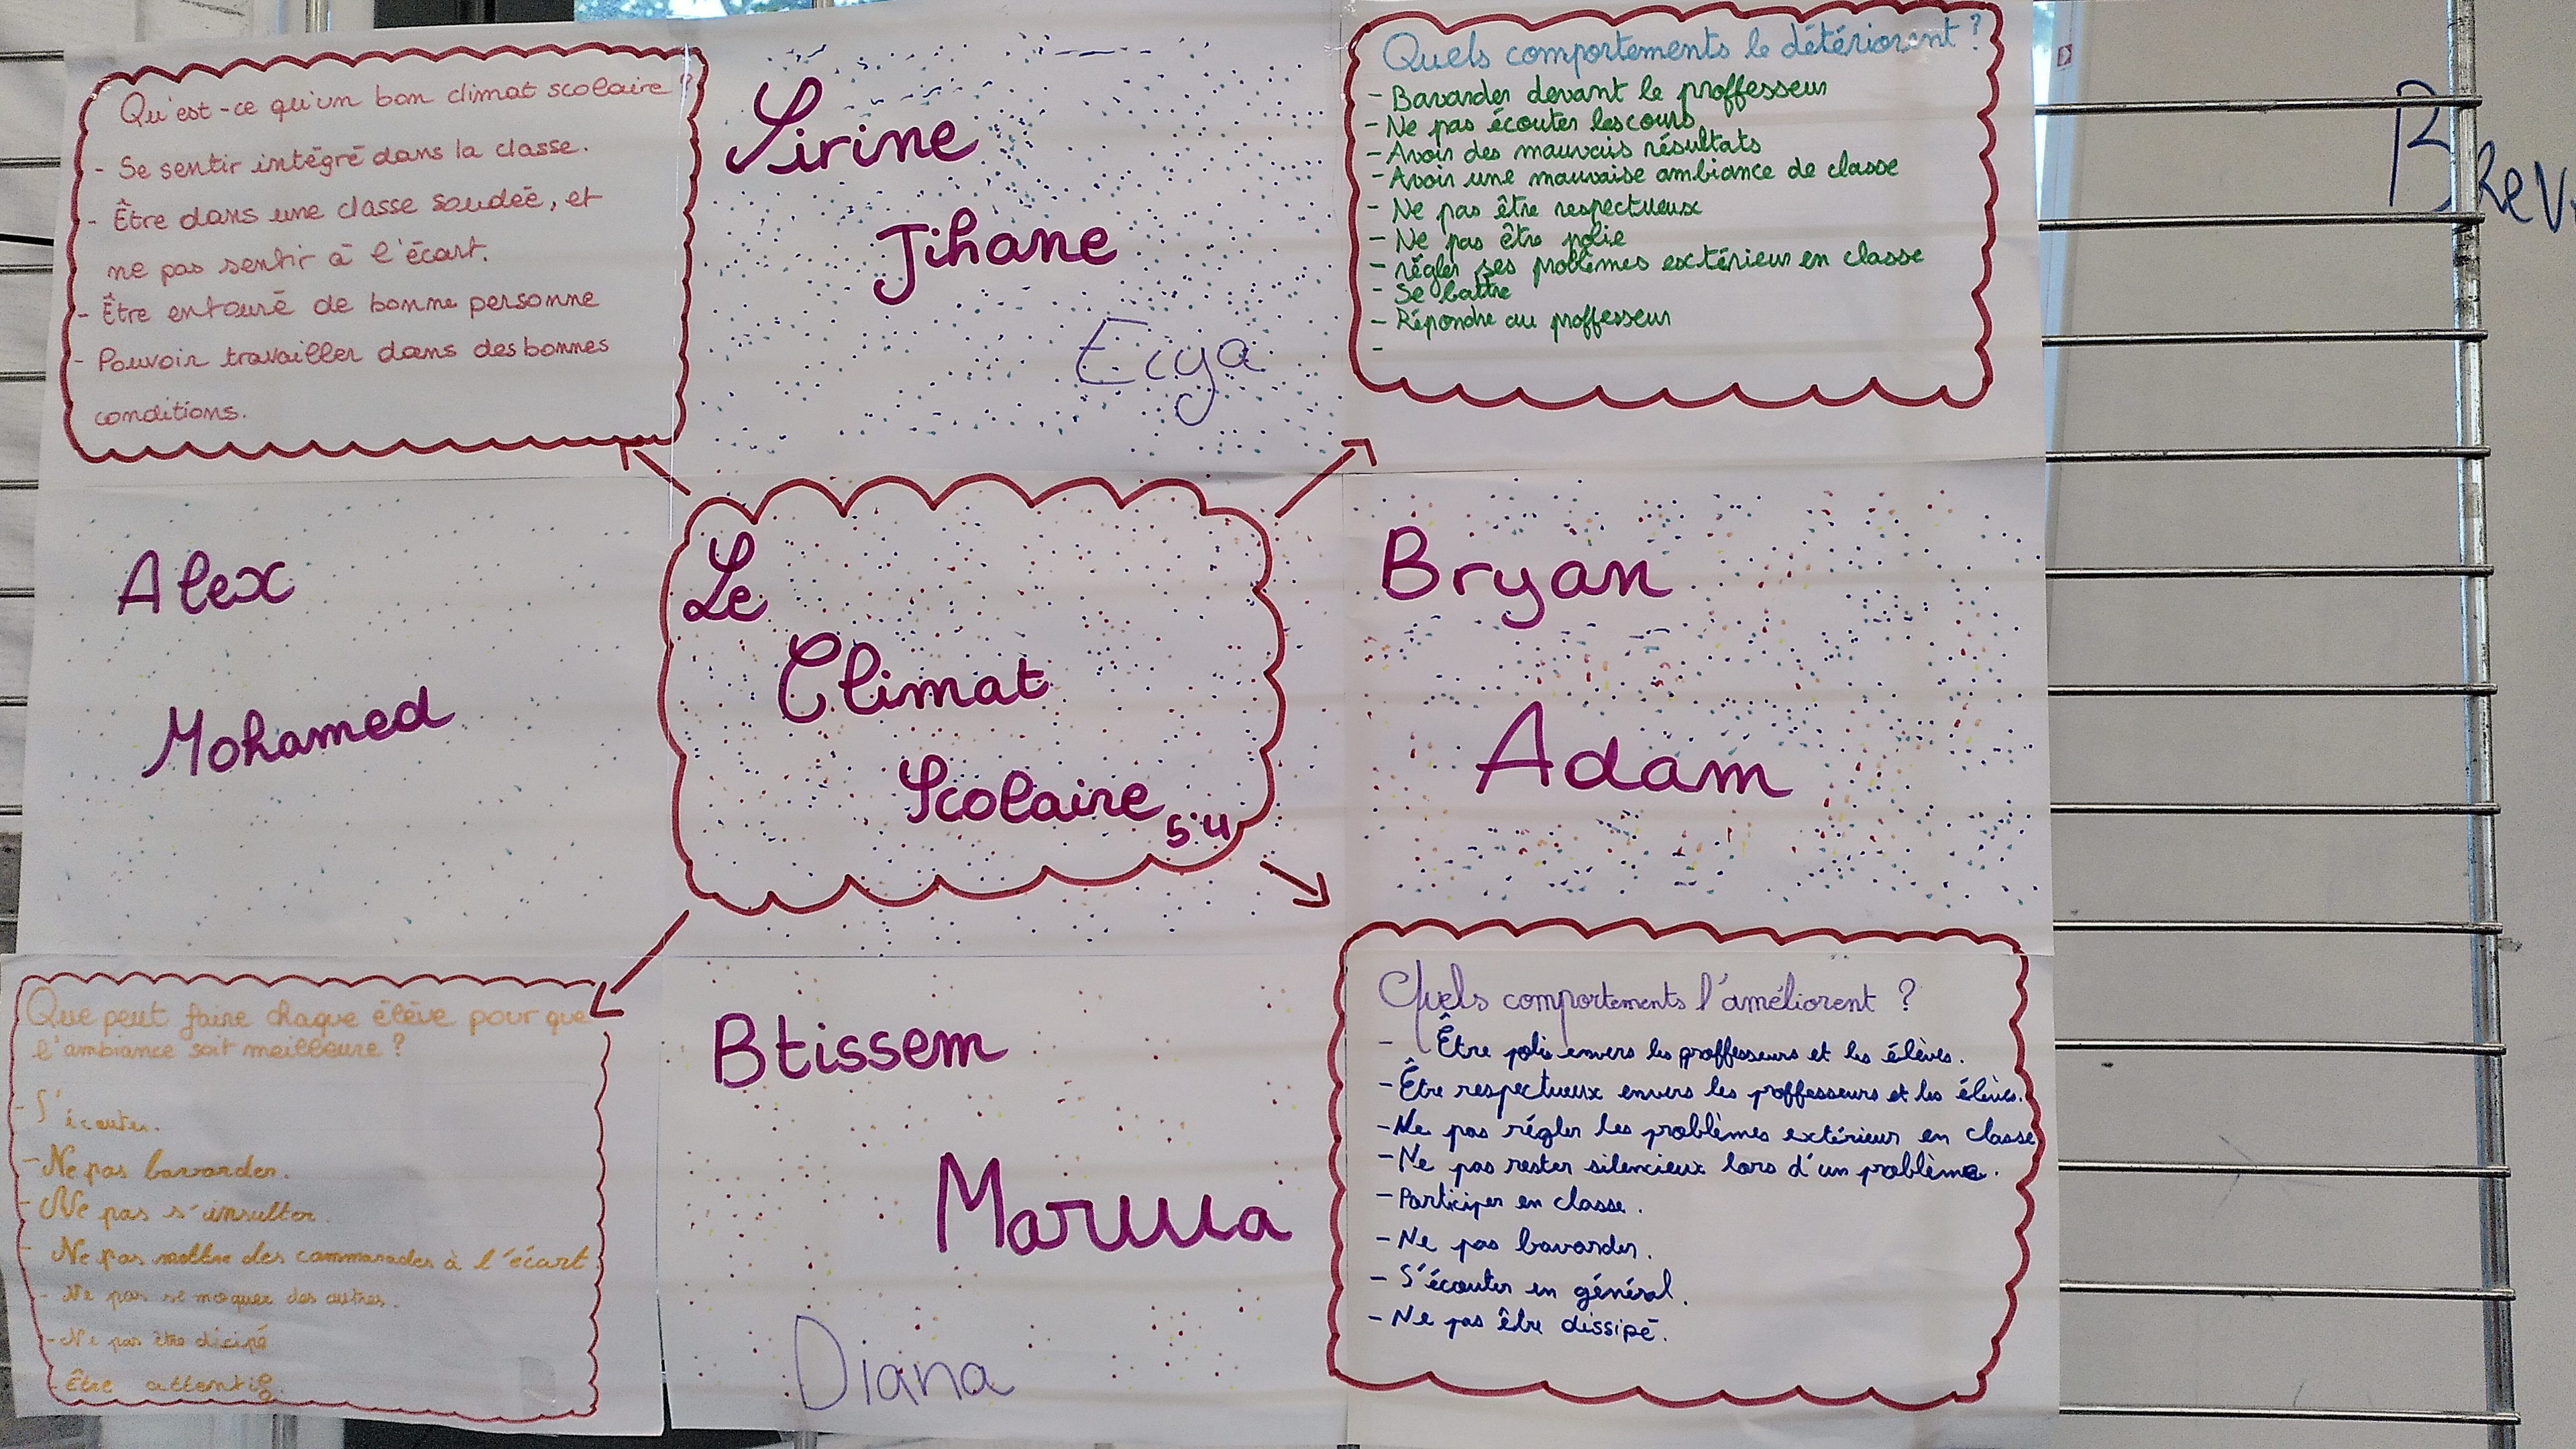 Qu'est-ce qu'un bon climat scolaire ?
- Se sentir intégré dans la classe.
- Être dans une classe soudée, et
ne pas sentir à l'écart.
- Être entouré de bonne personne
- Pouvoir travailler dans des bonnes
conditions.
Sirine
Jihane
Ecya
Quels comportements le détériorent ?
- Bavarder devant le proffesseur
- Ne pas écouter les cours
- Avoir des mauvais résultats
- Avoir une mauvaise ambiance de classe
- Ne pas être respectueux
- Ne pas être polie
- régler ses problèmes extérieur en classe
- Se battre
- Répondre au proffesseur
-
Alex
Mohamed
Le
Climat
Scolaire 5°4
Bryan
Adam
Que peut faire chaque élève pour que
l'ambiance soit meilleure ?
- S'écouter.
- Ne pas bavarder.
- Ne pas s'insulter.
- Ne pas mettre des cammarades à l'écart.
- Ne pas se moquer des autres.
- Ne pas être dicipé
Être attentif.
Btissem
Marwa
Diana
Quels comportements l'améliorent ?
- Être polie envers les proffesseurs et les élèves.
- Être respectueux envers les proffesseurs et les élèves.
- Ne pas régler les problèmes extérieur en classe
- Ne pas rester silencieux lors d'un problème.
- Participer en classe.
- Ne pas bavarder.
- S'écouter en général.
- Ne pas être dissipé.